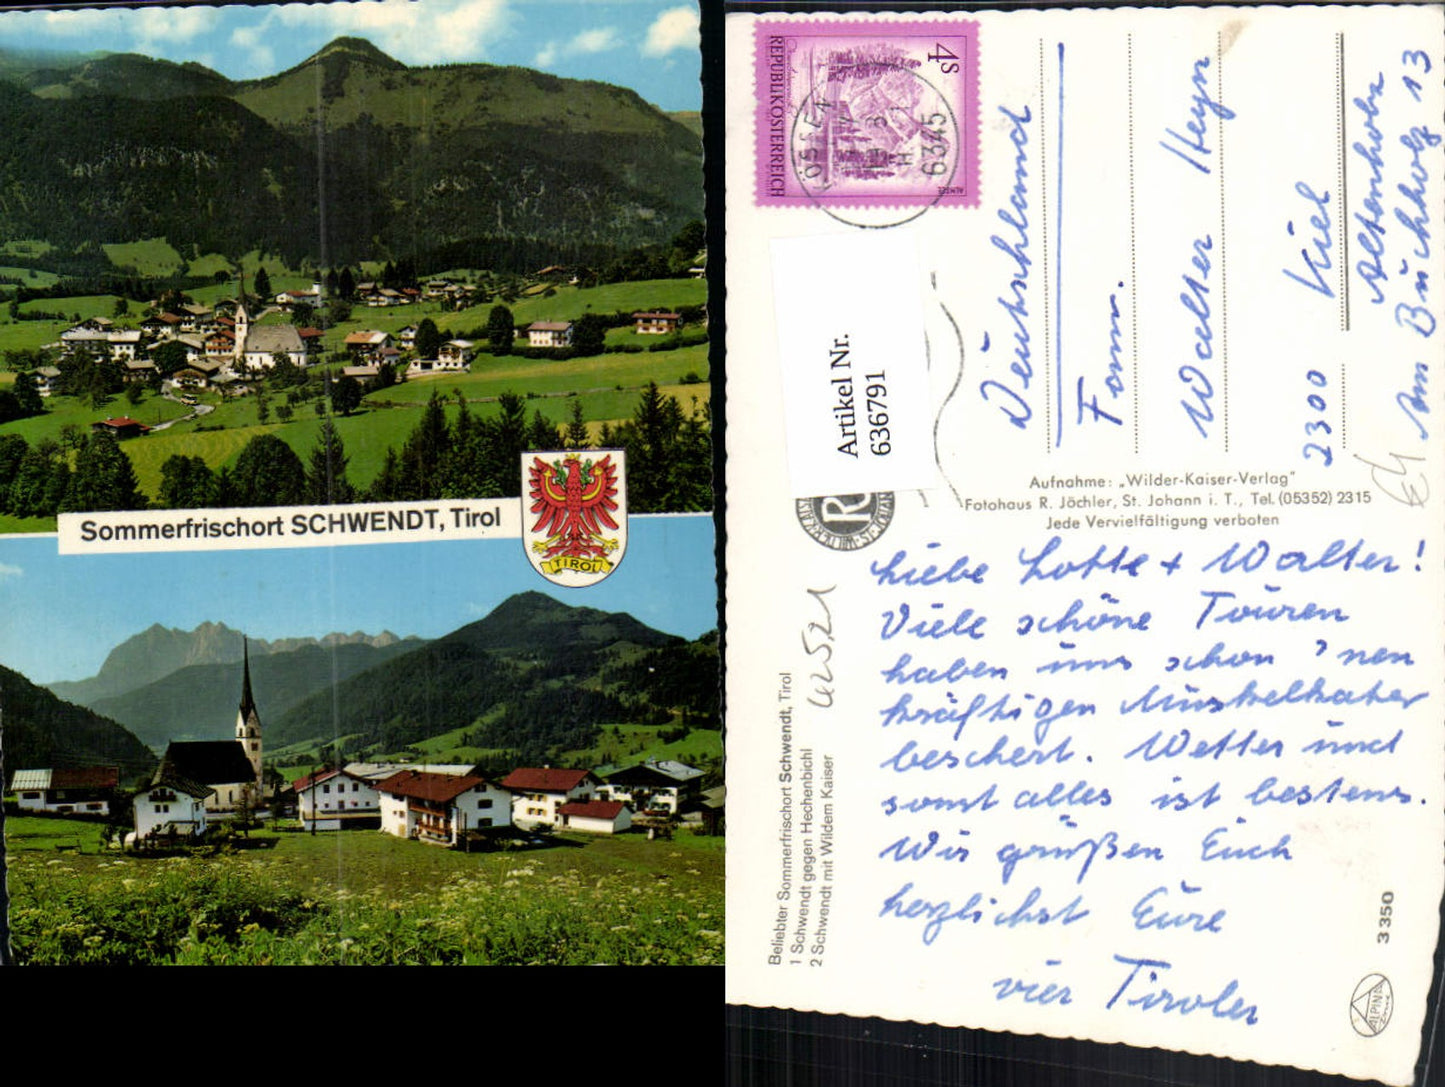 Sommerfrischort SCHWENDT, Tirol
TIROL
4S
REPUBLIK ÖSTERREICH
ALMSEE
KÖSSEN
6345
Artikel Nr.
636791
Deutschland
Fam.
Walter Heyn
2300 Kiel
Altenholz
Am Buchholz 13
Aufnahme: „Wilder-Kaiser-Verlag"
Fotohaus R. Jöchler, St. Johann i. T., Tel. (05352) 2315
Jede Vervielfältigung verboten
Liebe Lotte + Walter!
Viele schöne Touren
haben uns schon 'nen
kräftigen Muskelkater
beschert. Wetter und
sonst alles ist bestens.
Wir grüßen Euch
herzlichst Eure
vier Tiroler
Beliebter Sommerfrischort Schwendt, Tirol
1 Schwendt gegen Hechenbichl
2 Schwendt mit Wildem Kaiser
3 350
ALPINA